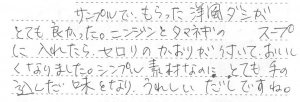 サンプルでいもらった洋風ダシが
とても良かった。ニンジンとタマネギの スープ
に入れたら、セロリのかおりがきいて、おいし
くなりました。シンプル素材なのに、とても手の
込んだ味となり、うれしいだしですね。